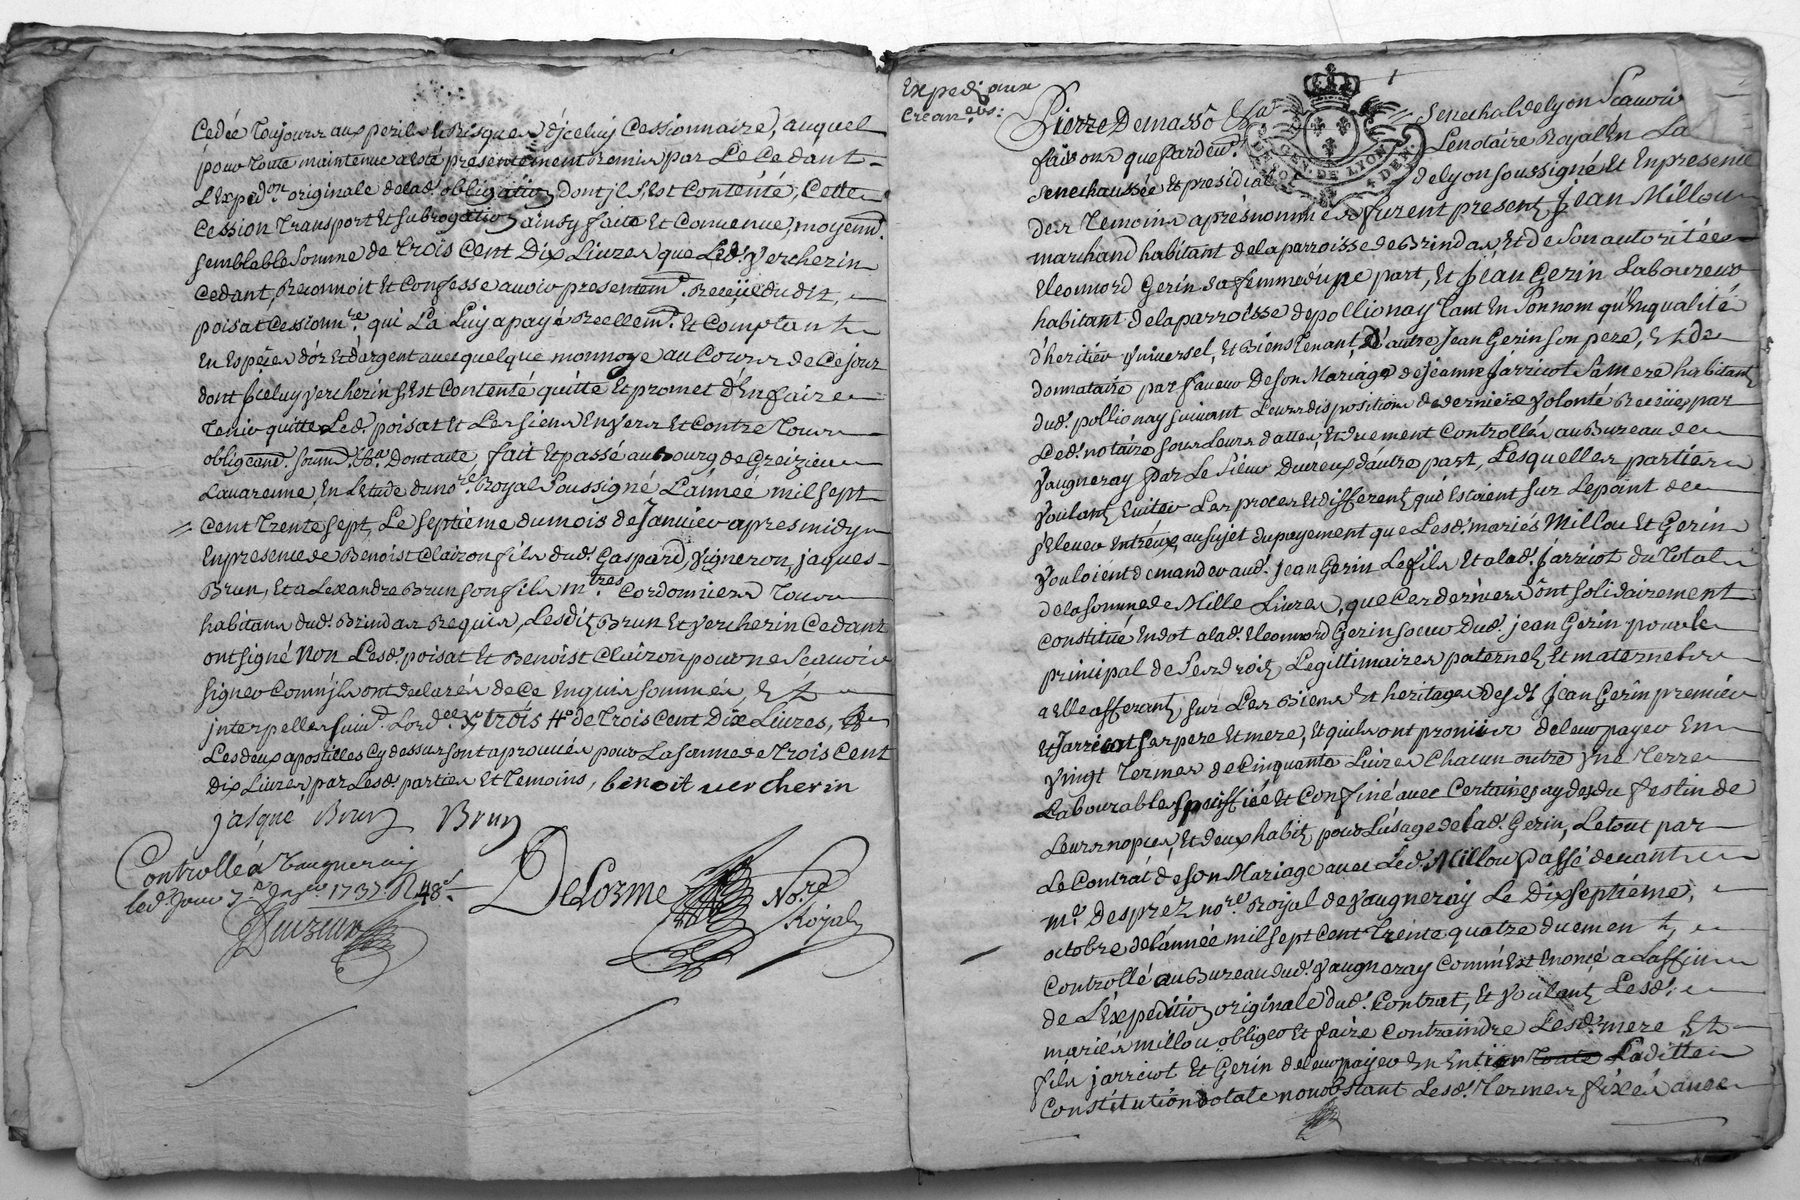 Cedée toujours aux perils et risques d'jceluy Cessionnaire, auquel
pour toute maintenue a esté présentement remis par Le Cedant
L'Exped.on originale de lad. obligation dont jl s'Est Contenté, Cette
Cession transport Et subrogation ainsy faite Et Convenue, moyenn.t
semblable somme de trois Cent Dix Livres que Led. Vercherin
Cedant, Reconnoit Et Confesse avoir presentem.t Receüe dudit
poisat Cessionn.re qui La Luy a payé Reellem.t Et Comptant
En Espéces d'or Et d'argent avec quelque monnoye au Cours de Ce jour
dont jceluy Vercherin s'Est Contenté quitte Et promet d'En faire
tenir quitte Led. poisat Et Les siens Envers Et Contre tous
obligeant. soum.t &a. Dont acte fait Et passé au bourg de Greizieu
Lavarenne, En L'Etude du no.re Royal soussigné L'année mil sept
Cent trente sept, Le septieme du mois de Janvier apres midy
En presence de Benoist Clairon fils dud. Gaspard, Vigneron, jaques
Brun, Et alexandre Brun son fils m.tres Cordonniers tous
habitans dud. Brindas Requis, Lesdits Brun Et Vercherin Cedant
ont signé Non Lesd. poisat Et Benoist Clairon pour ne Scavoir
signer Comm'jls ont declarés de Ce Enquis sommés Et
jnterpellés suiv.t Lord.ce trois # de trois Cent Dix Livres,
Les deux apostilles Cy dessus sont aprouvées pour La somme de trois Cent
Dix Livres par Lesd. parties Et temoins, benoit vercherin
jasque Brun Brun
Controllé à Vaugneray
led. jour 7.e Jan.er 1737 R 48.s
DeLorme No.re
Royal
Expedi aux
Crean.ers:
Pierre Demasso Senechal de Lyon Scavoir
faisons que pardev.t Le notaire Royal En La
GEN. DE LYON
Senechaussée Et presidial de Lyon soussigné Et En presence
des temoins aprés nommés furent presents Jean Millou
marchand habitant de la parroisse de Brindas, Et de son autorité
Eleonnord Gerin sa femme d'une part, Et Jean Gerin Laboureur
habitant de la parroisse de pollionay tant En son nom qu'En qualité
d'heritier Vniversel, Et Biens tenant, d'autre Jean Gerin son pere, Et de
donnataire par faveur De son Mariage de jeanne Jarricot sa mere habitants
dud. pollionay suivant Leurs dispositions de derniere Volonté Receües par
Led. notaire sous Leurs dattes Et duement Controllés au Bureau de
Vaugneray par Le Sieur Ducreux d'autre part, Lesquelles parties
Voulants Eviter Les proces Et differents qui Estoient sur Le point de
s'Elever Entr'eux au sujet du payement que Lesd. mariés Millou Et Gerin
Vouloient demander aud. Jean Gerin Le fils Et a lad. Jarricot du total
de la somme de Mille Livres, que Ces derniers ont solidairement
Constitué En dot a lad. Eleonnord Gerin soeur Dud. jean Gerin pour le
principal de Ses droits Legittimaires paternels Et maternels
a Elle afferants sur Les Biens Et heritages desdt Jean Gerin premier
Et Jarricot Ses pere Et mere, Et quils ont promis de leur payer En
Vingt termes de Cinquante Livres Chacun outre Vne terre
Labourable Speciffiée Et Confinée avec Certaines aydes du festin de
Leurs nopces, Et deux habits pour L'usage de lad. Gerin, Le tout par
Le Contrat de son Mariage avec Led. Millou passé devant
m.e Desprez no.re Royal de Vaugneray Le Dix Septiéme,
octobre de l'année mil sept Cent trente quatre duement
Controllé au Bureau dud. Vaugneray Comm'Est Enoncé a Laffin
de L'Expedition originale dud. Contrat, Et Voulants Lesd.
mariés millou obliger Et faire Contraindre Lesd. mere Et
fils jarricot Et Gerin de leur payer En Entier toute Laditte
Constitution dotale nonobstant Lesd. termes fixés